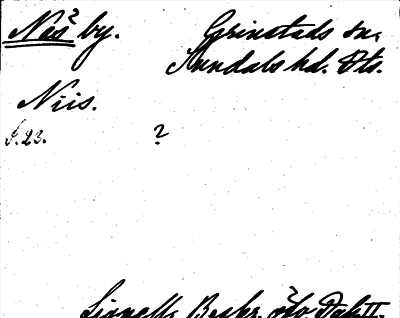 Näs by. Grinstads sn.
Sundals hd. Dls.
Niis.
S. 23. ?
Signell, Beskr. Dal II.